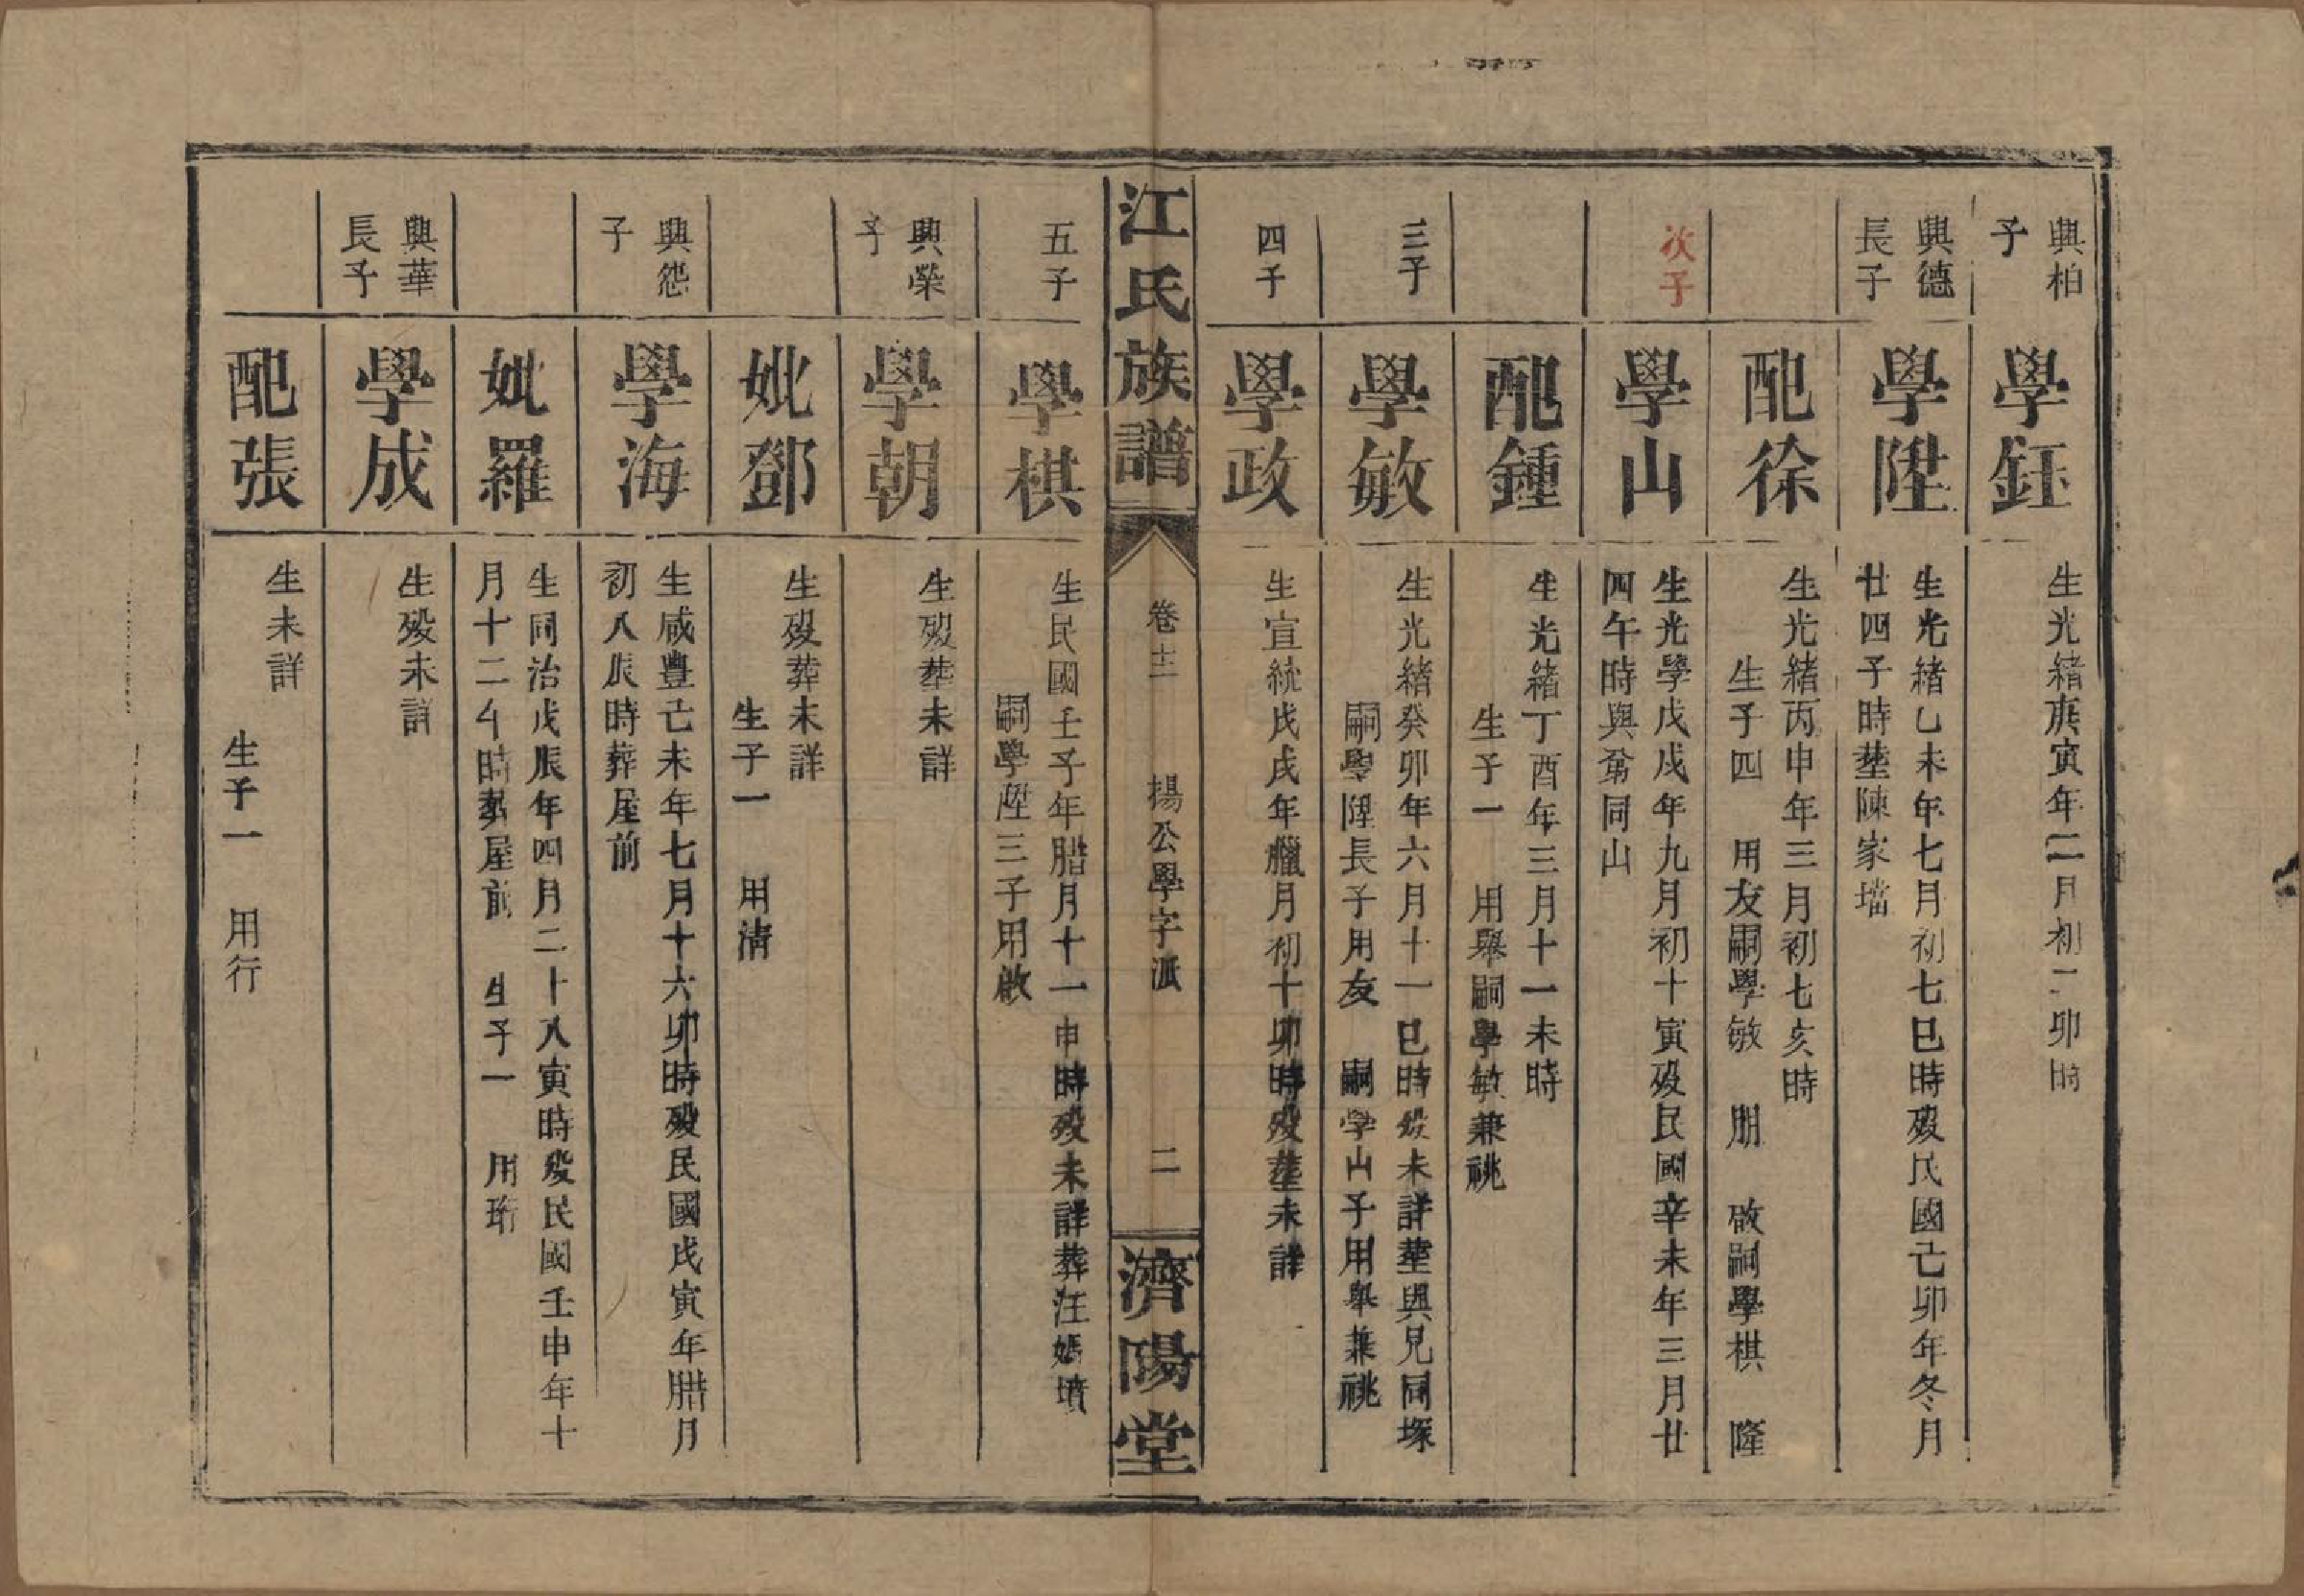 興柏
子
學鈺
生光緒庚寅年二月初二卯時
興德
長子
學陞
生光緒乙未年七月初七巳時歿民國己卯年冬月
廿四子時塟陳家壋
配徐
生光緒丙申年三月初七亥時
生子四 用友嗣學敏 朋 啟嗣學棋 隆
次子
學山
生光學戊戌年九月初十寅歿民國辛未年三月廿
四午時與翁同山
配鍾
生光緒丁酉年三月十一未時
生子一 用舉嗣學敏兼祧
三子
學敏
生光緒癸卯年六月十一巳時歿未詳塟與兄同塚
嗣學陞長子用友 嗣学山子用舉兼祧
四子
學政
生宣統戊戌年臘月初十卯時歿塟未詳
江氏族譜
卷十二 揚公學字派 二
濟陽堂
五子
學棋
生民國壬子年腊月十一申時歿未詳葬汪媽墳
嗣學陞三子用啟
興榮
子
學朝
生歿塟未詳
妣鄧
生歿葬未詳
生子一 用清
興
子
學海
生咸豊己未年七月十六卯時歿民國戊寅年腊月
初八辰時葬屋前
妣羅
生同治戊辰年四月二十八寅時歿民國壬申年十
月十二午時塟屋前 生子一 用珩
興華
長子
學成
生歿未詳
配張
生未詳
生子一 用行